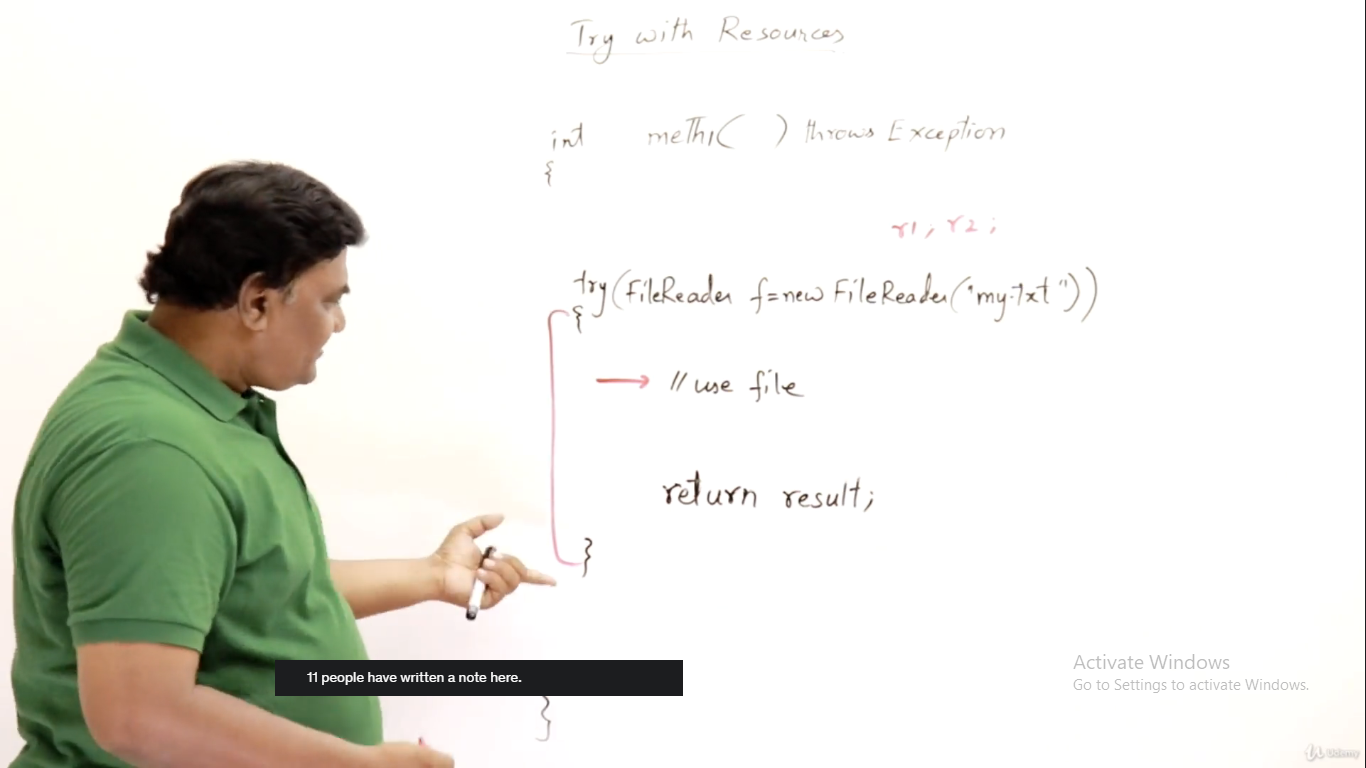 Try with Resources
int meth1( ) throws Exception
{
r1, r2;
try(FileReader f=new FileReader("my.txt"))
{
//use file
return result;
}
11 people have written a note here.
Activate Windows
Go to Settings to activate Windows.
}
Udemy